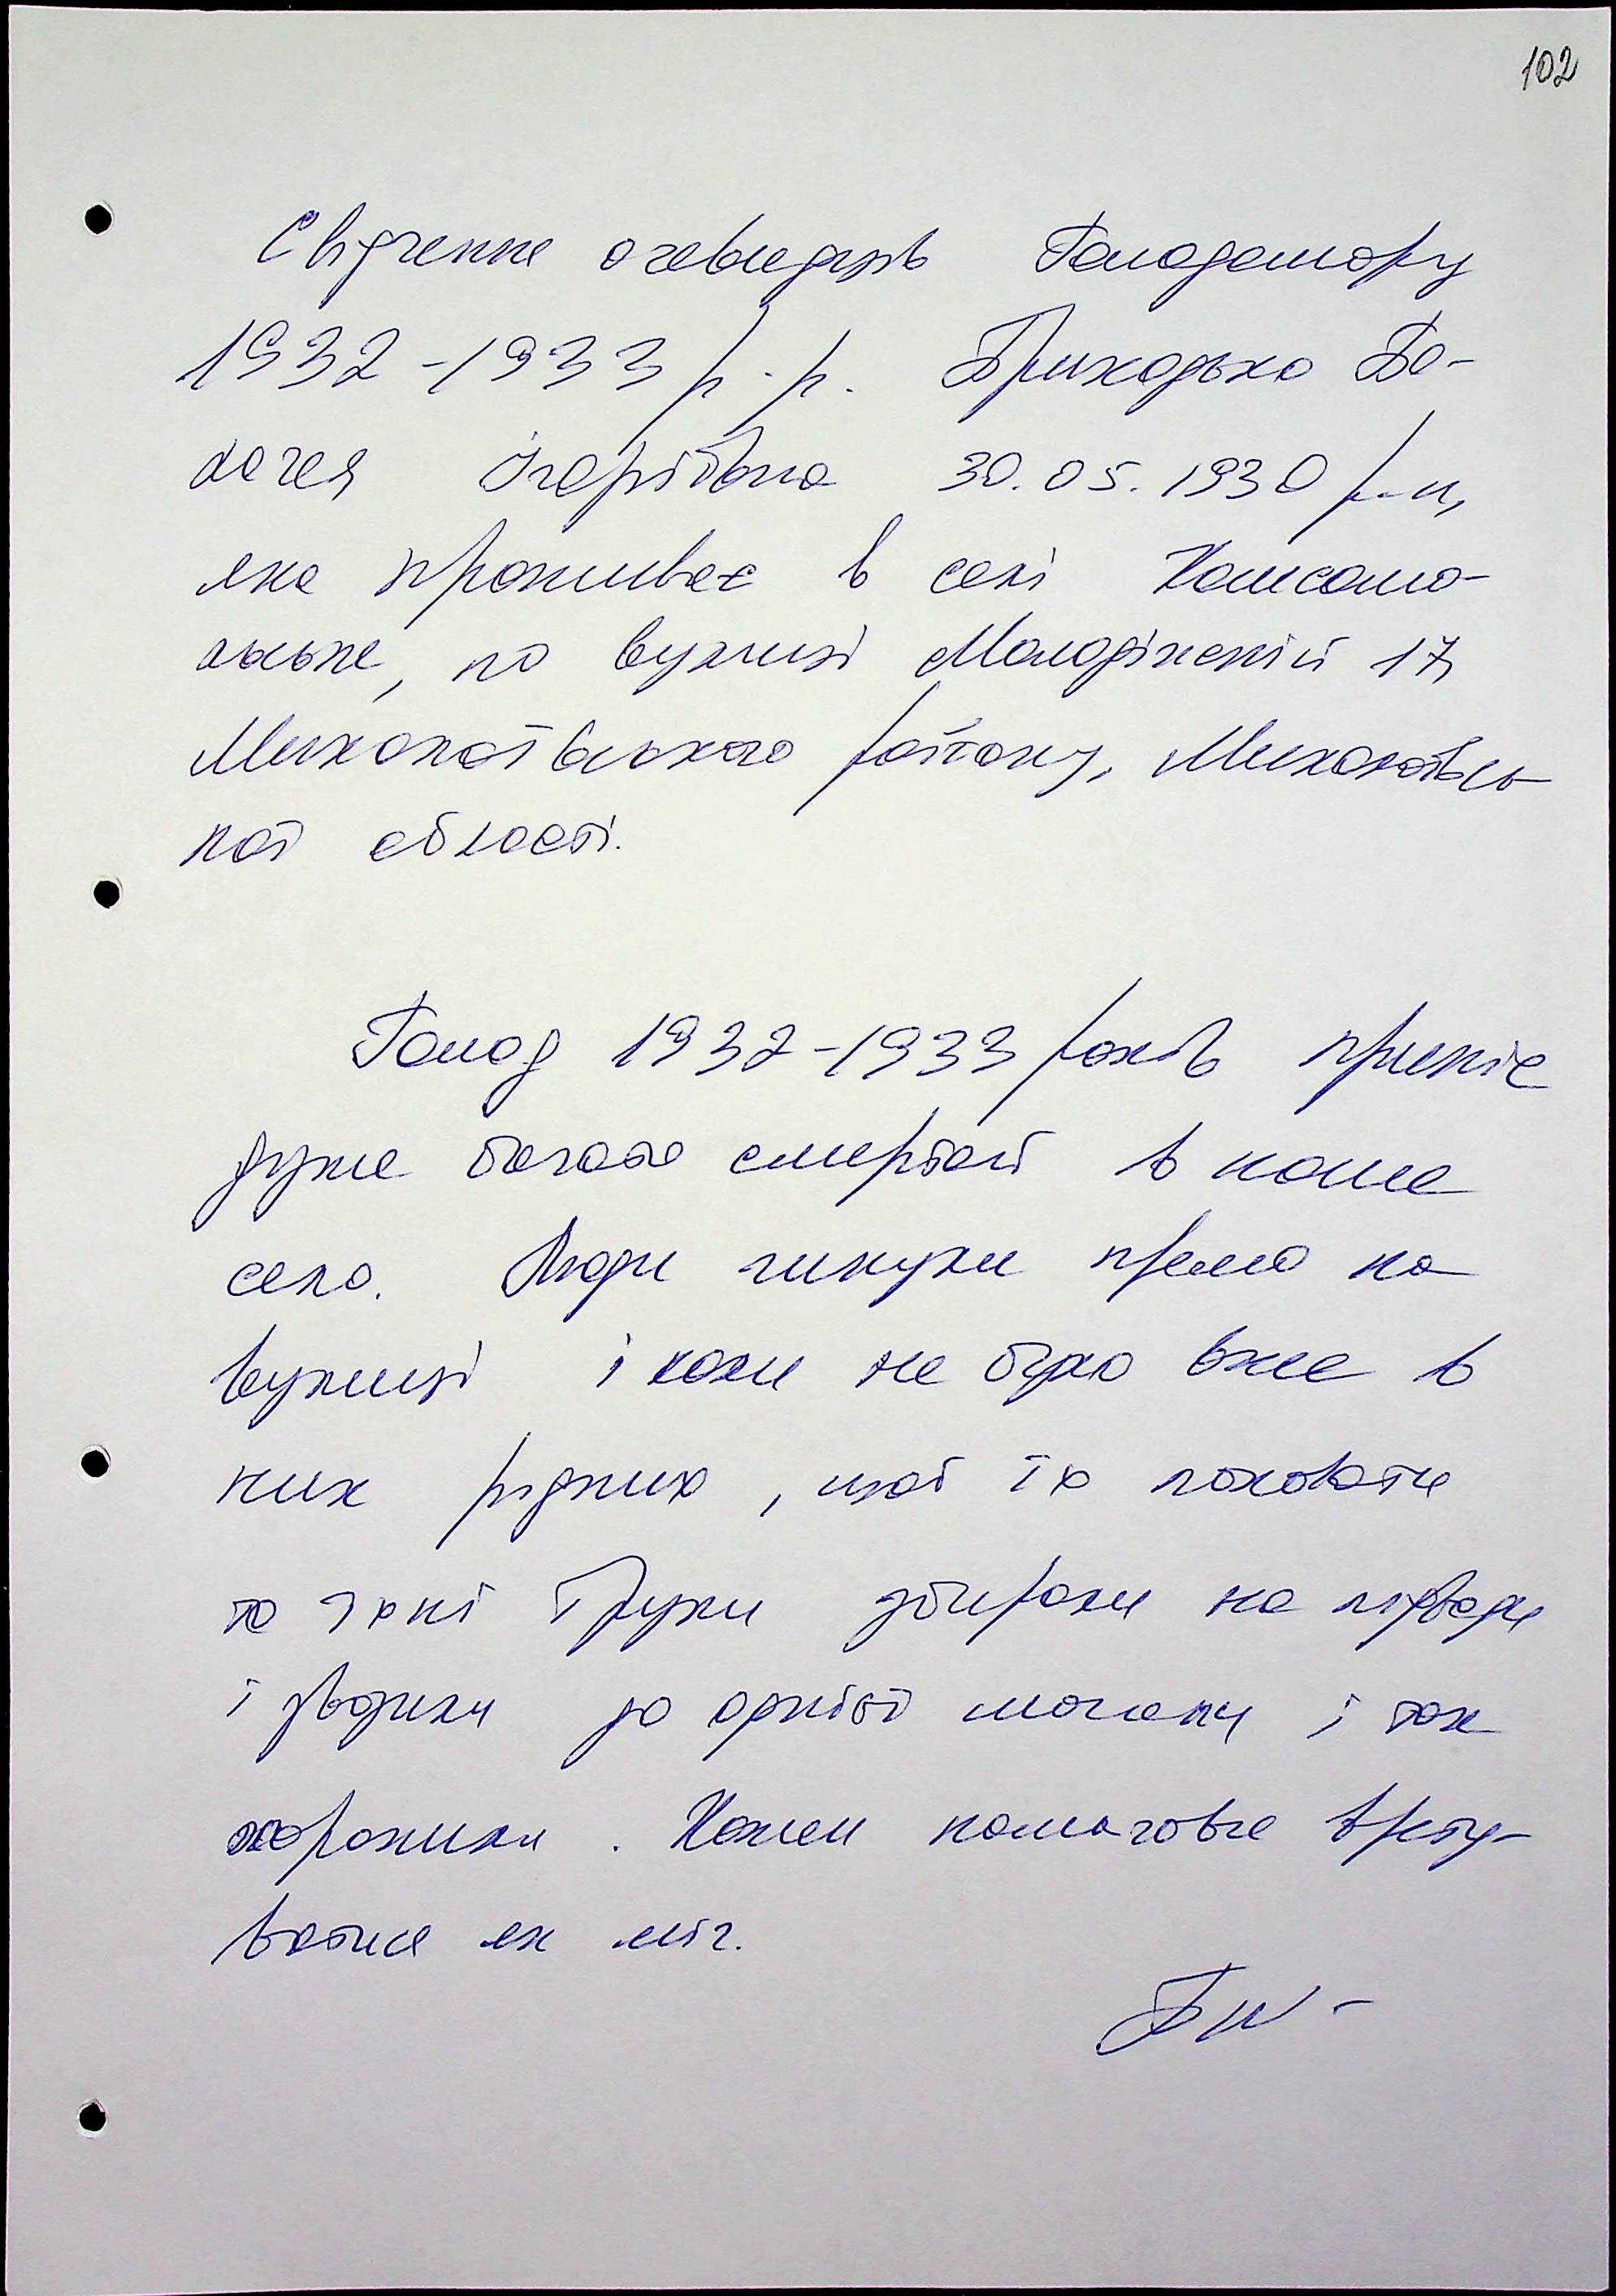 102
Свідчення очевидців Голодомору
1932-1933 р.р. Приходько Пе-
лагея Ігорівна 30.05.1930 р.н,
яка проживає в селі Комсомо-
льське, по вулиці Молодіжній 17,
Миколаївського району, Миколаївсь-
кої області.
Голод 1932-1933 років приніс
дуже багато смертей в наше
село. Люди гинули прямо на
вулиці і коли не було вже в
них рідних, щоб їх поховати
то їхні трупи збирали на підводи
і звозили до однієї могили і так
хоронили. Кожен намагався вряту-
ватися як міг.